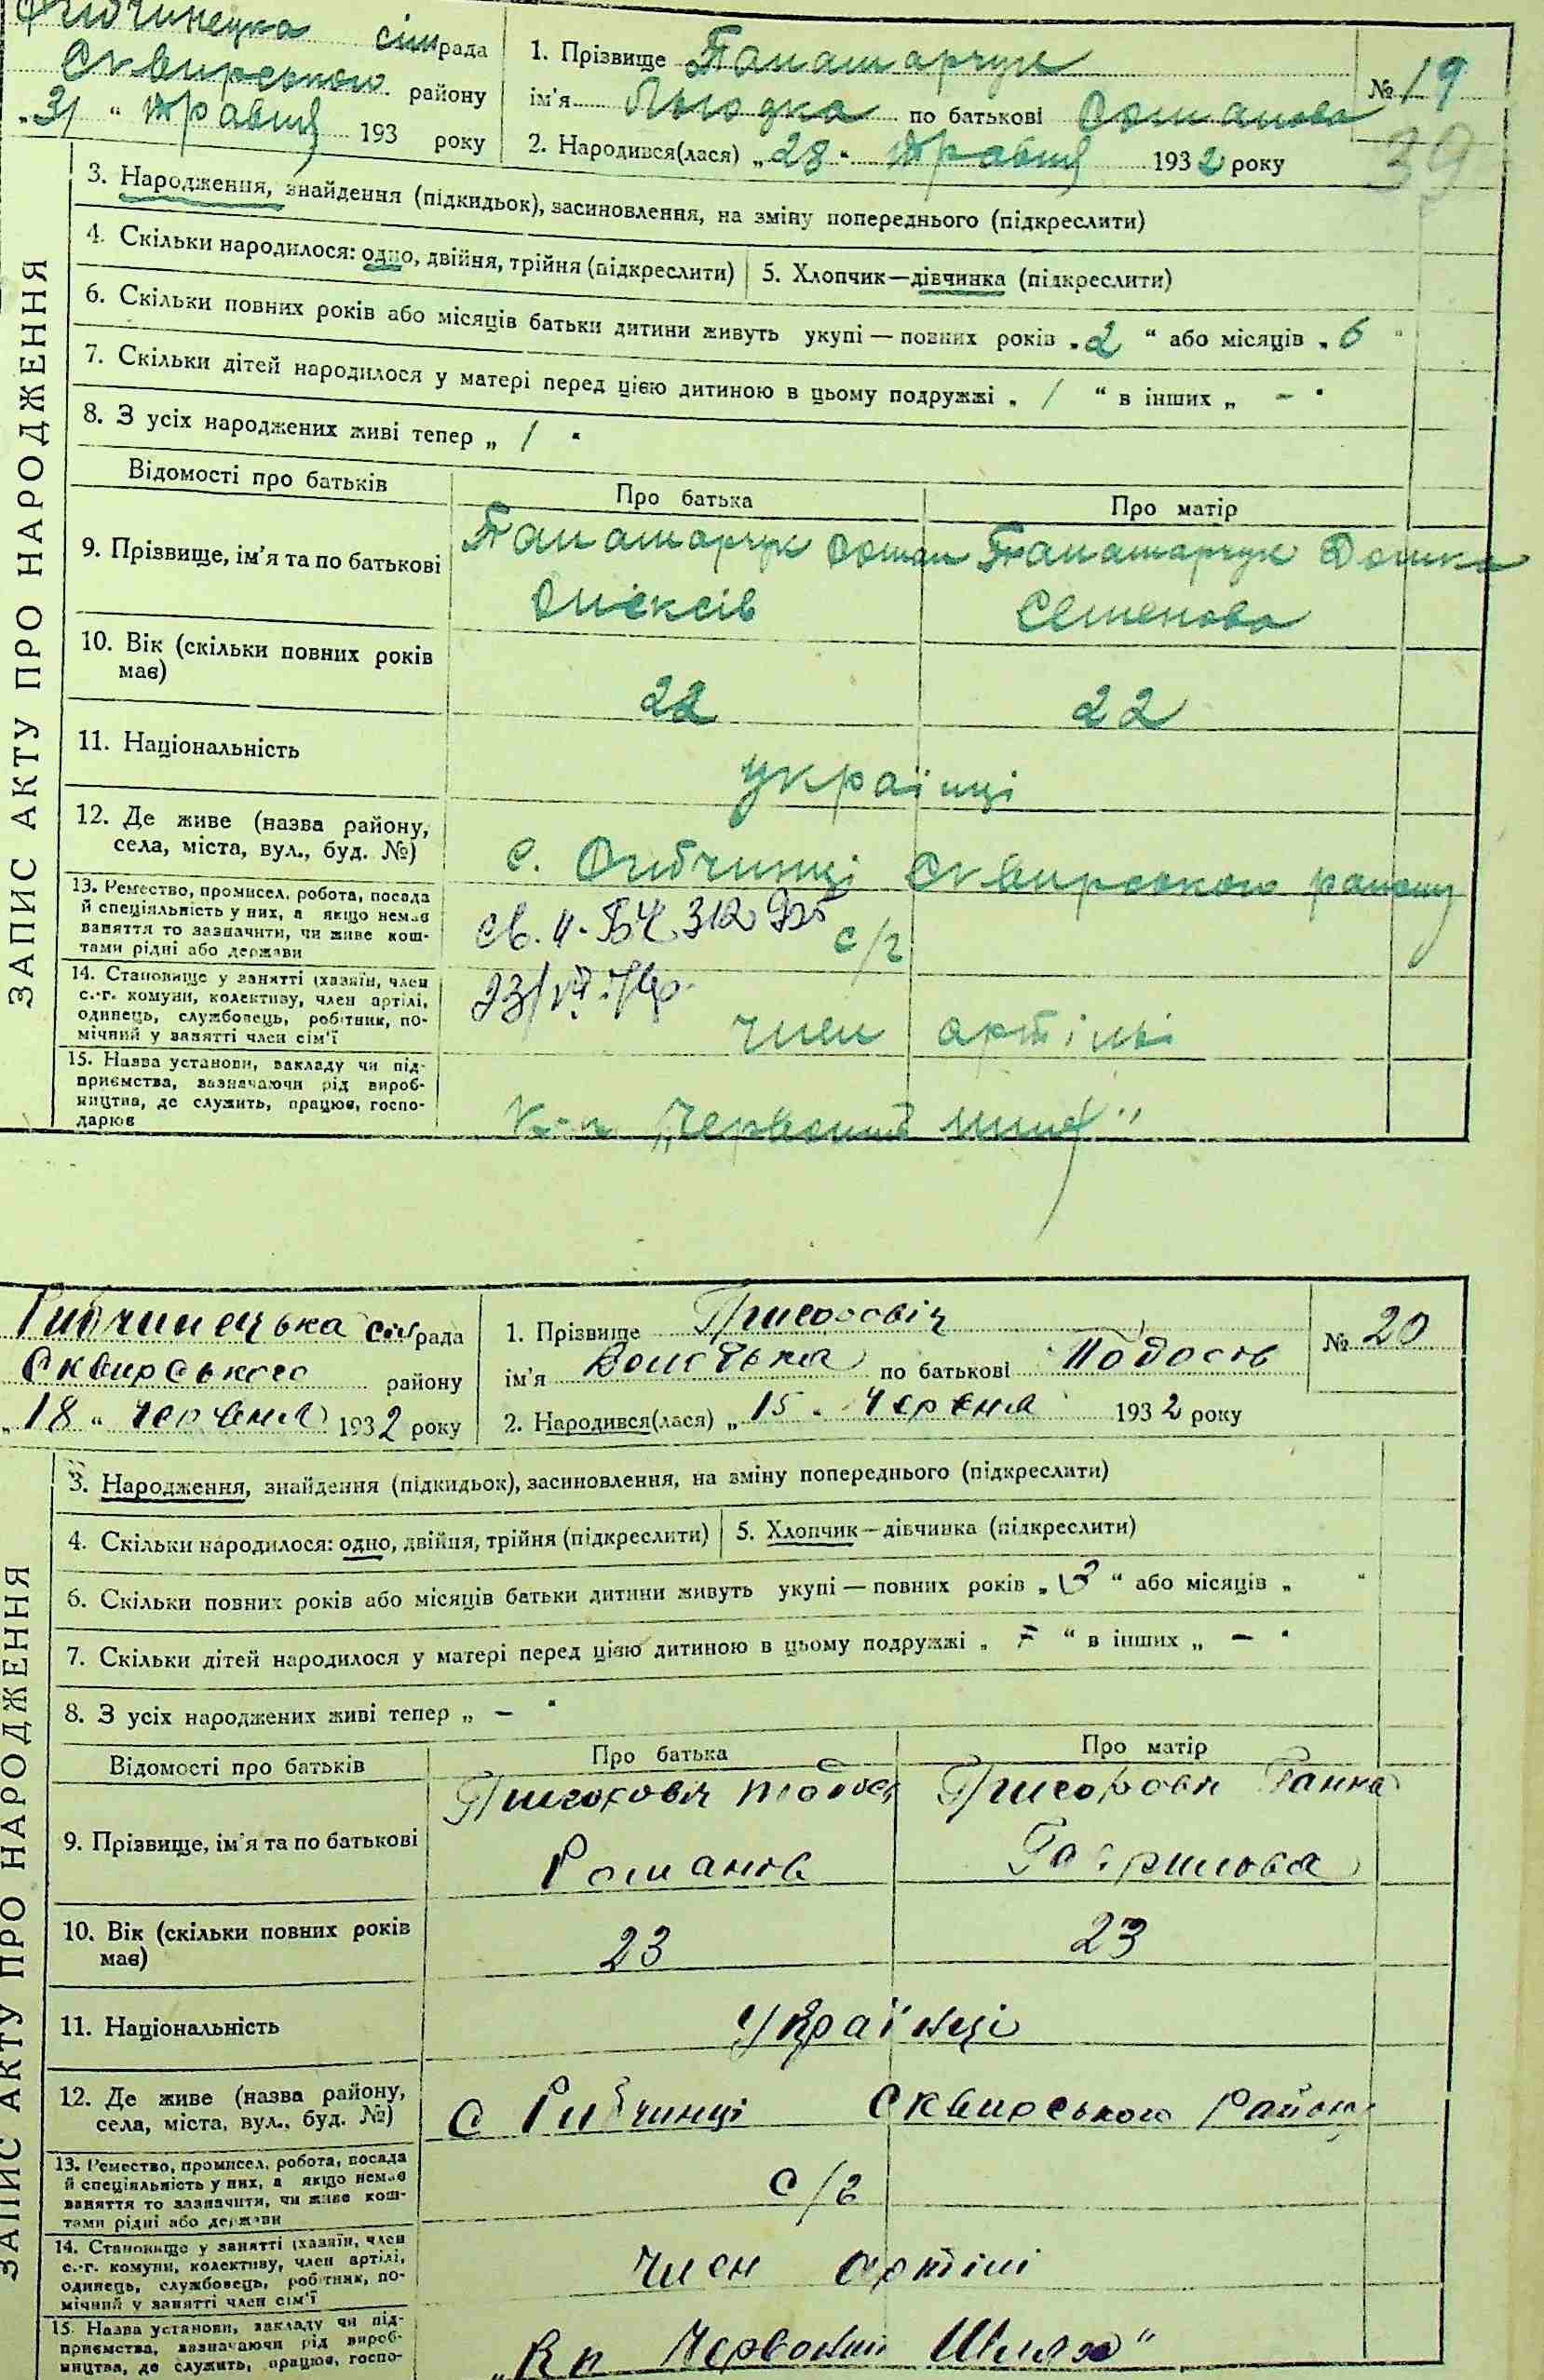 сільрада
Сквирського району
„31“ Травня 193 року
1. Прізвище Паламарчук
ім'я Людка по батькові
2. Народився(лася) „28“ Травня 1932 року
№ 19
39
ЗАПИС АКТУ ПРО НАРОДЖЕННЯ
3. Народження, знайдення (підкидьок), засиновлення, на зміну попереднього (підкреслити)
4. Скільки народилося: одно, двійня, трійня (підкреслити)
5. Хлопчик—дівчинка (підкреслити)
6. Скільки повних років або місяців батьки дитини живуть укупі — повних років „2“ або місяців „6“
7. Скільки дітей народилося у матері перед цією дитиною в цьому подружжі „1“ в інших „–“
8. З усіх народжених живі тепер „1“
Відомості про батьків
Про батька
Про матір
9. Прізвище, ім'я та по батькові
Паламарчук
Олексів
Паламарчук Домка
Семенова
10. Вік (скільки повних років має)
22
22
11. Національність
українці
12. Де живе (назва району, села, міста, вул., буд. №)
с. Рибчинці Сквирського району
13. Ремество, промисел, робота, посада
й спеціяльність у них, а якщо немає
заняття то зазначити, чи живе кош-
тами рідні або держави
с/г
14. Становище у занятті (хазяїн, член
с.-г. комуни, колективу, член артілі,
одинець, службовець, робітник, по-
мічний у занятті член сім'ї
член артілі
15. Назва установи, закладу чи під-
приємства, зазначаючи рід вироб-
ництва, де служить, працює, госпо-
дарює
„Червоний шлях“
Рибчинецька сільрада
Сквирського району
„18“ червня 1932 року
1. Прізвище
ім'я по батькові
2. Народився(лася) „15“ Червня 1932 року
№ 20
ЗАПИС АКТУ ПРО НАРОДЖЕННЯ
3. Народження, знайдення (підкидьок), засиновлення, на зміну попереднього (підкреслити)
4. Скільки народилося: одно, двійня, трійня (підкреслити)
5. Хлопчик—дівчинка (підкреслити)
6. Скільки повних років або місяців батьки дитини живуть укупі — повних років „3“ або місяців „ “
7. Скільки дітей народилося у матері перед цією дитиною в цьому подружжі „ “ в інших „–“
8. З усіх народжених живі тепер „–“
Відомості про батьків
Про батька
Про матір
9. Прізвище, ім'я та по батькові
Романов
Ганна
Гаврилова
10. Вік (скільки повних років має)
23
23
11. Національність
Українці
12. Де живе (назва району, села, міста, вул., буд. №)
с Рибчинці Сквирського Району
13. Ремество, промисел, робота, посада
й спеціяльність у них, а якщо немає
заняття то зазначити, чи живе кош-
тами рідні або держави
с/г
14. Становище у занятті (хазяїн, член
с.-г. комуни, колективу, член артілі,
одинець, службовець, робітник, по-
мічний у занятті член сім'ї
член артілі
15. Назва установи, закладу чи під-
приємства, зазначаючи рід вироб-
ництва, де служить, працює, госпо-
Червоний Шлях“